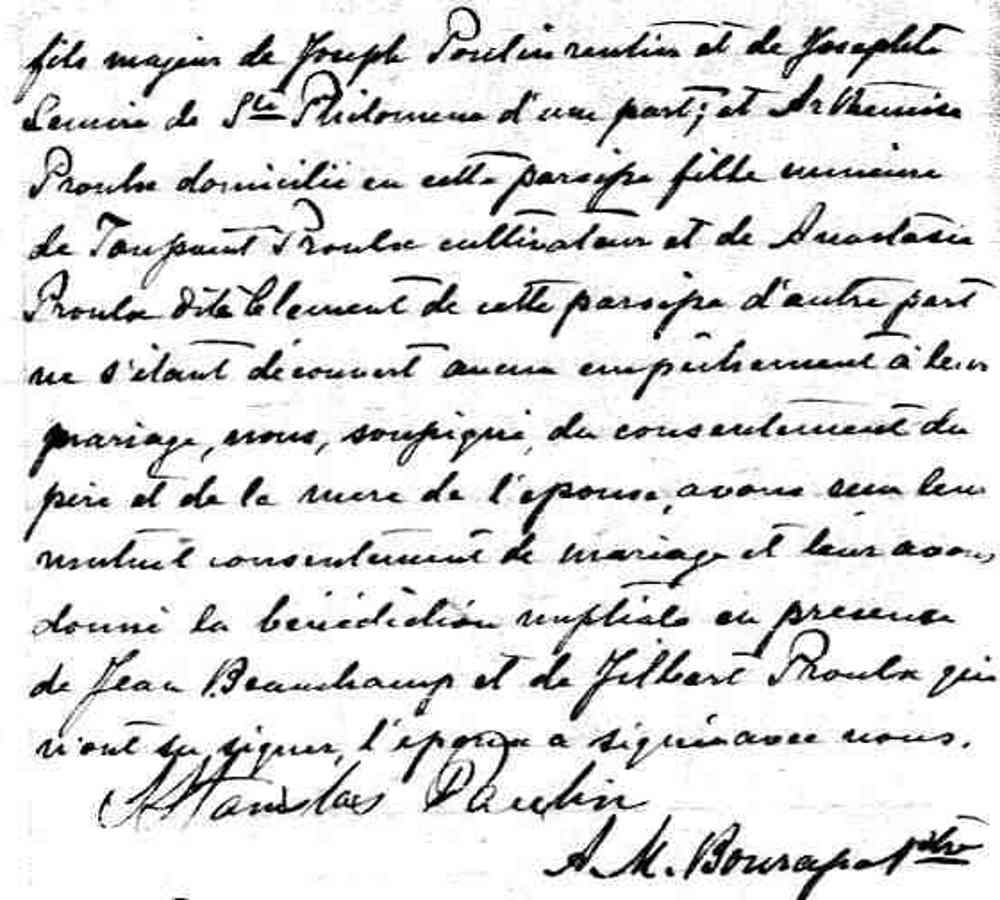 fils majeur de Joseph Poulin rentier et de Josephte
Lemire de Ste Philomene d'une part; et Arthemise
Proulx domiciliée en cette paroisse fille mineure
de Toussaint Proulx cultivateur et de Anastasie
Proulx dite Clement de cette paroisse d'autre part
ne s'étant découvert aucun empêchement à leur
mariage, nous, soussigné, du consentement du
père et de la mere de l'épouse, avons reçu leur
mutuel consentement de mariage et leur avons
donné la bénédiction nuptiale en presence
de Jean Beauchamp et de Jilbert Proulx qui
n'ont su signer, l'époux a signé avec nous.
Stanislas Paulin
A. M. Bourassa Ptre